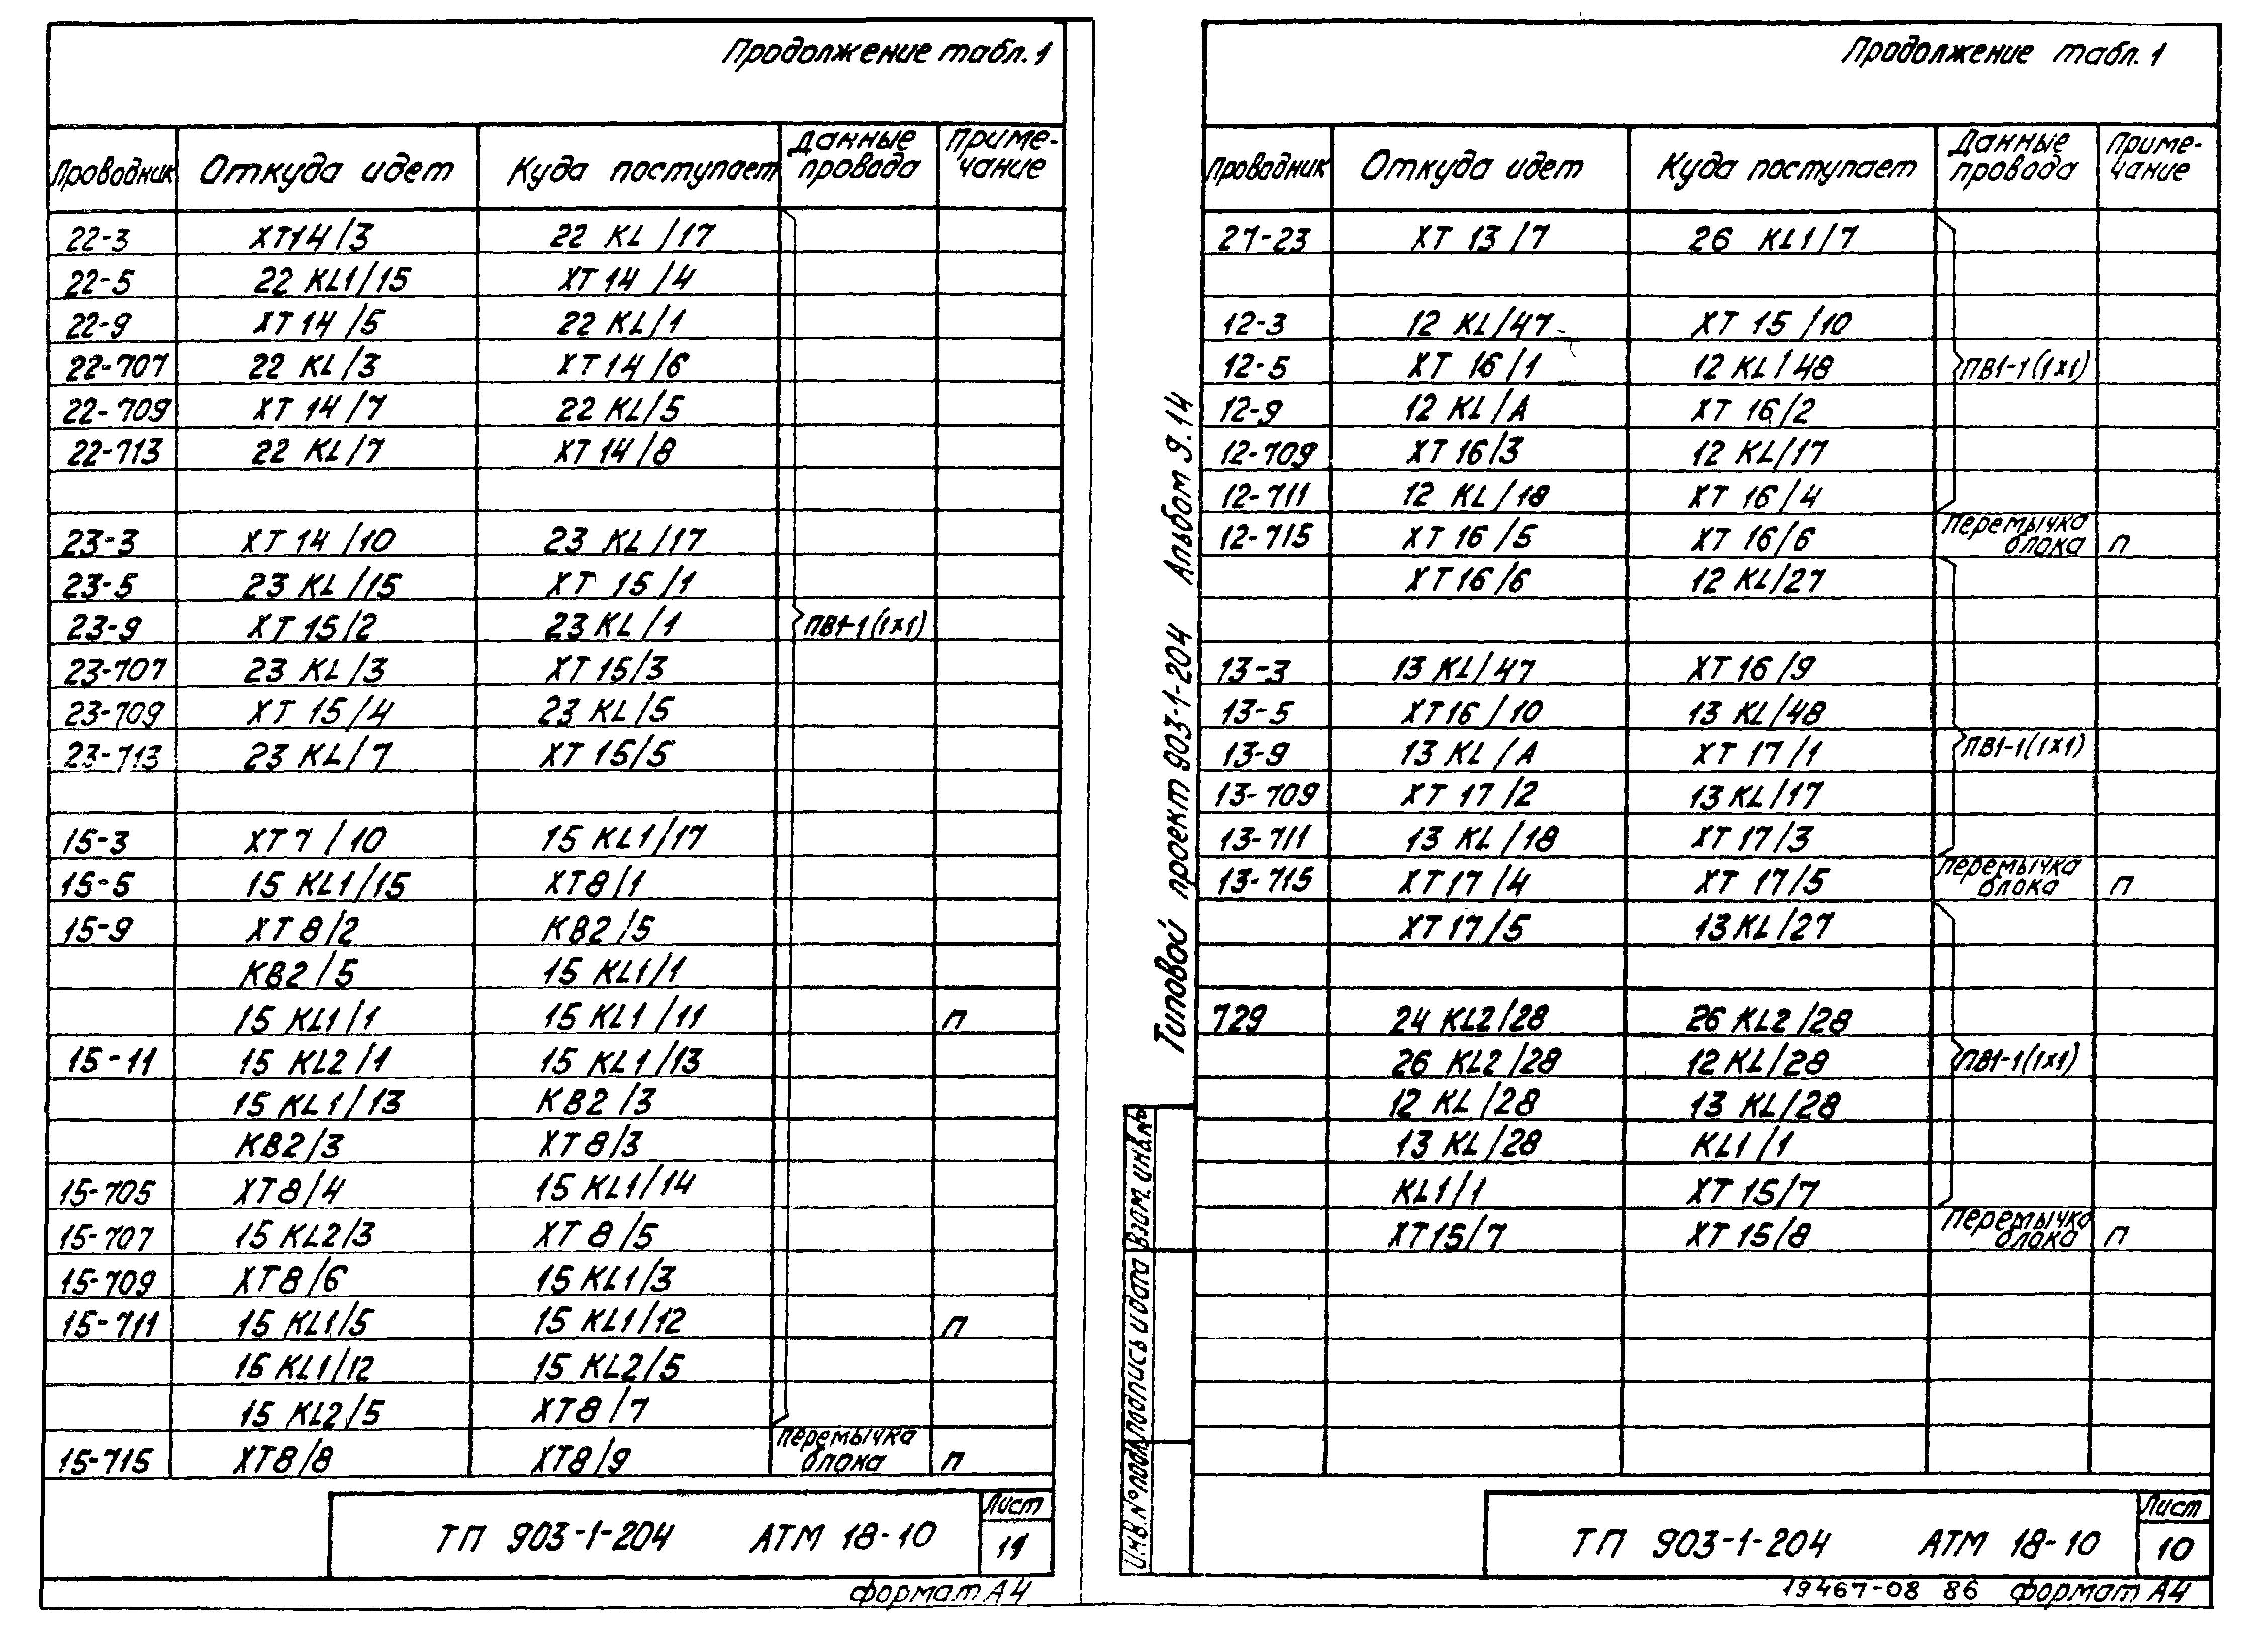 Продолжение табл.1
Проводник Откуда идет Куда поступает Данные провода Приме-чание
22-3 XT14/3 22 KL/17
22-5 22 KL1/15 XT14/4
22-9 XT14/5 22 KL/1
22-707 22 KL/3 XT14/6
22-709 XT14/7 22 KL/5
22-713 22 KL/7 XT14/8
23-3 XT14/10 23 KL/17
23-5 23 KL/15 XT 15/1
23-9 XT15/2 23 KL/1 ПВ1-1(1x1)
23-707 23 KL/3 XT15/3
23-709 XT 15/4 23 KL/5
23-713 23 KL/7 XT 15/5
15-3 XT7/10 15 KL1/17
15-5 15 KL1/15 XT8/1
15-9 XT8/2 KB2/5
KB2/5 15 KL1/1
15 KL1/1 15 KL1/11 п
15-11 15 KL2/1 15 KL1/13
15 KL1/13 KB2/3
KB2/3 XT8/3
15-705 XT8/4 15 KL1/14
15-707 15 KL2/3 XT8/5
15-709 XT8/6 15 KL1/3
15-711 15 KL1/5 15 KL1/12 п
15 KL1/12 15 KL2/5
15 KL2/5 XT8/7
15-715 XT8/8 XT8/9 перемычка блока п
ТП 903-1-204 АТМ 18-10
Лист
11
формат А4
Продолжение табл.1
Проводник Откуда идет Куда поступает Данные провода Приме-чание
27-23 XT 13/7 26 KL1/7
12-3 12 KL/47 XT 15/10
12-5 XT 16/1 12 KL/48 ПВ1-1(1x1)
12-9 12 KL/A XT 16/2
12-709 XT 16/3 12 KL/17
12-711 12 KL/18 XT 16/4
12-715 XT 16/5 XT 16/6 перемычка блока п
XT16/6 12 KL/27
13-3 13 KL/47 XT 16/9
13-5 XT16/10 13 KL/48
13-9 13 KL/A XT 17/1 ПВ1-1(1x1)
13-709 XT 17/2 13 KL/17
13-711 13 KL/18 XT 17/3
13-715 XT17/4 XT 17/5 перемычка блока п
XT17/5 13 KL/27
729 24 KL2/28 26 KL2/28
26 KL2/28 12 KL/28 ПВ1-1(1x1)
12 KL/28 13 KL/28
13 KL/28 KL1/1
KL1/1 XT 15/7
XT15/7 XT 15/8 Перемычка блока п
Типовой проект 903-1-204 Альбом 9.14
Инв.№подл. Подпись и дата Взам.инв.№
ТП 903-1-204 АТМ 18-10
Лист
10
19467-08 86 формат А4